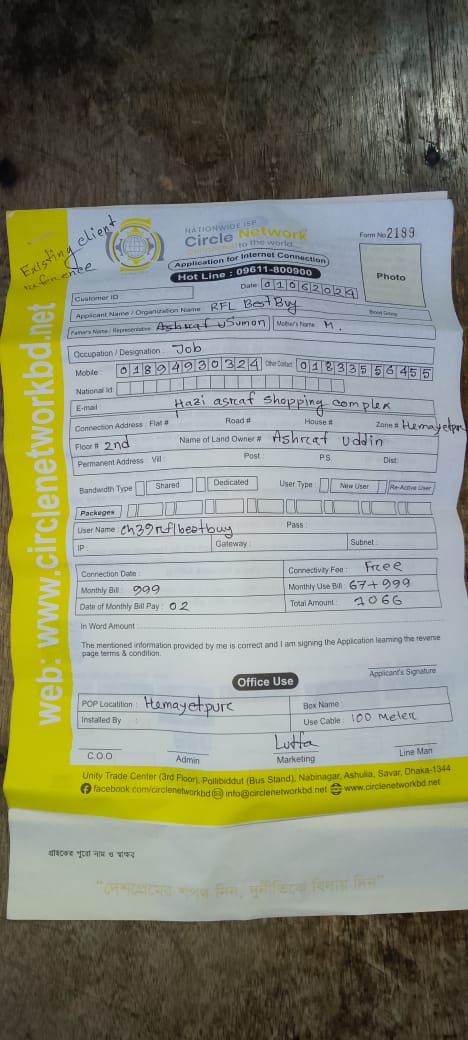 Existing client
reference
NATIONWIDE ISP
Circle Network
to the world...
Form No 2199
Application for Internet Connection
Hot Line : 09611-800900
Photo
Date 01062024
Customer ID
Applicant Name / Organization Name : RFL BestBuy
Blood Group
Father's Name / Representative Ashraf Sumon Mother's Name : M.
Occupation / Designation : Job
Mobile : 01894930324 Other Contact 01833556455
National Id:
E-mail :
Hazi asraf shopping complex
Connection Address : Flat # Road # House # Zone # Hemayetpur
Floor # 2nd Name of Land Owner # Ashraf Uddin
Permanent Address Vill : Post : P.S. Dist.
Bandwidth Type Shared Dedicated User Type : New User Re-Active User
Packeges
User Name ch39rflbestbuy Pass :
IP : Gateway : Subnet :
Connection Date : Connectivity Fee : Free
Monthly Bill : 999 Monthly Use Bill : 67+999
Date of Monthly Bill Pay : 02 Total Amount : 1066
In Word Amount :
The mentioned information provided by me is correct and I am signing the Application learning the reverse
page terms & condition.
Applicant's Signature
Office Use
POP Locatition : Hemayetpure Box Name :
Installed By : Use Cable : 100 Meter
Lutfa
C.O.O Admin Marketing Line Man
Unity Trade Center (3rd Floor), Pollibiddut (Bus Stand), Nabinagar, Ashulia, Savar, Dhaka-1344
facebook.com/circlenetworkbd info@circlenetworkbd.net www.circlenetworkbd.net
web: www.circlenetworkbd.net
গ্রাহকের পুরো নাম ও স্বাক্ষর
"দেশপ্রেমের শপথ নিন, দুর্নীতিকে বিদায় দিন"